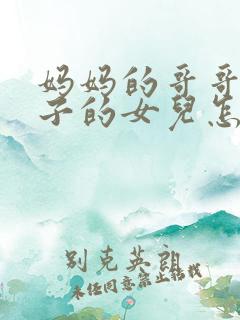 妈妈的哥哥
子的女兒怎
别克英朗
未经同意禁止转载